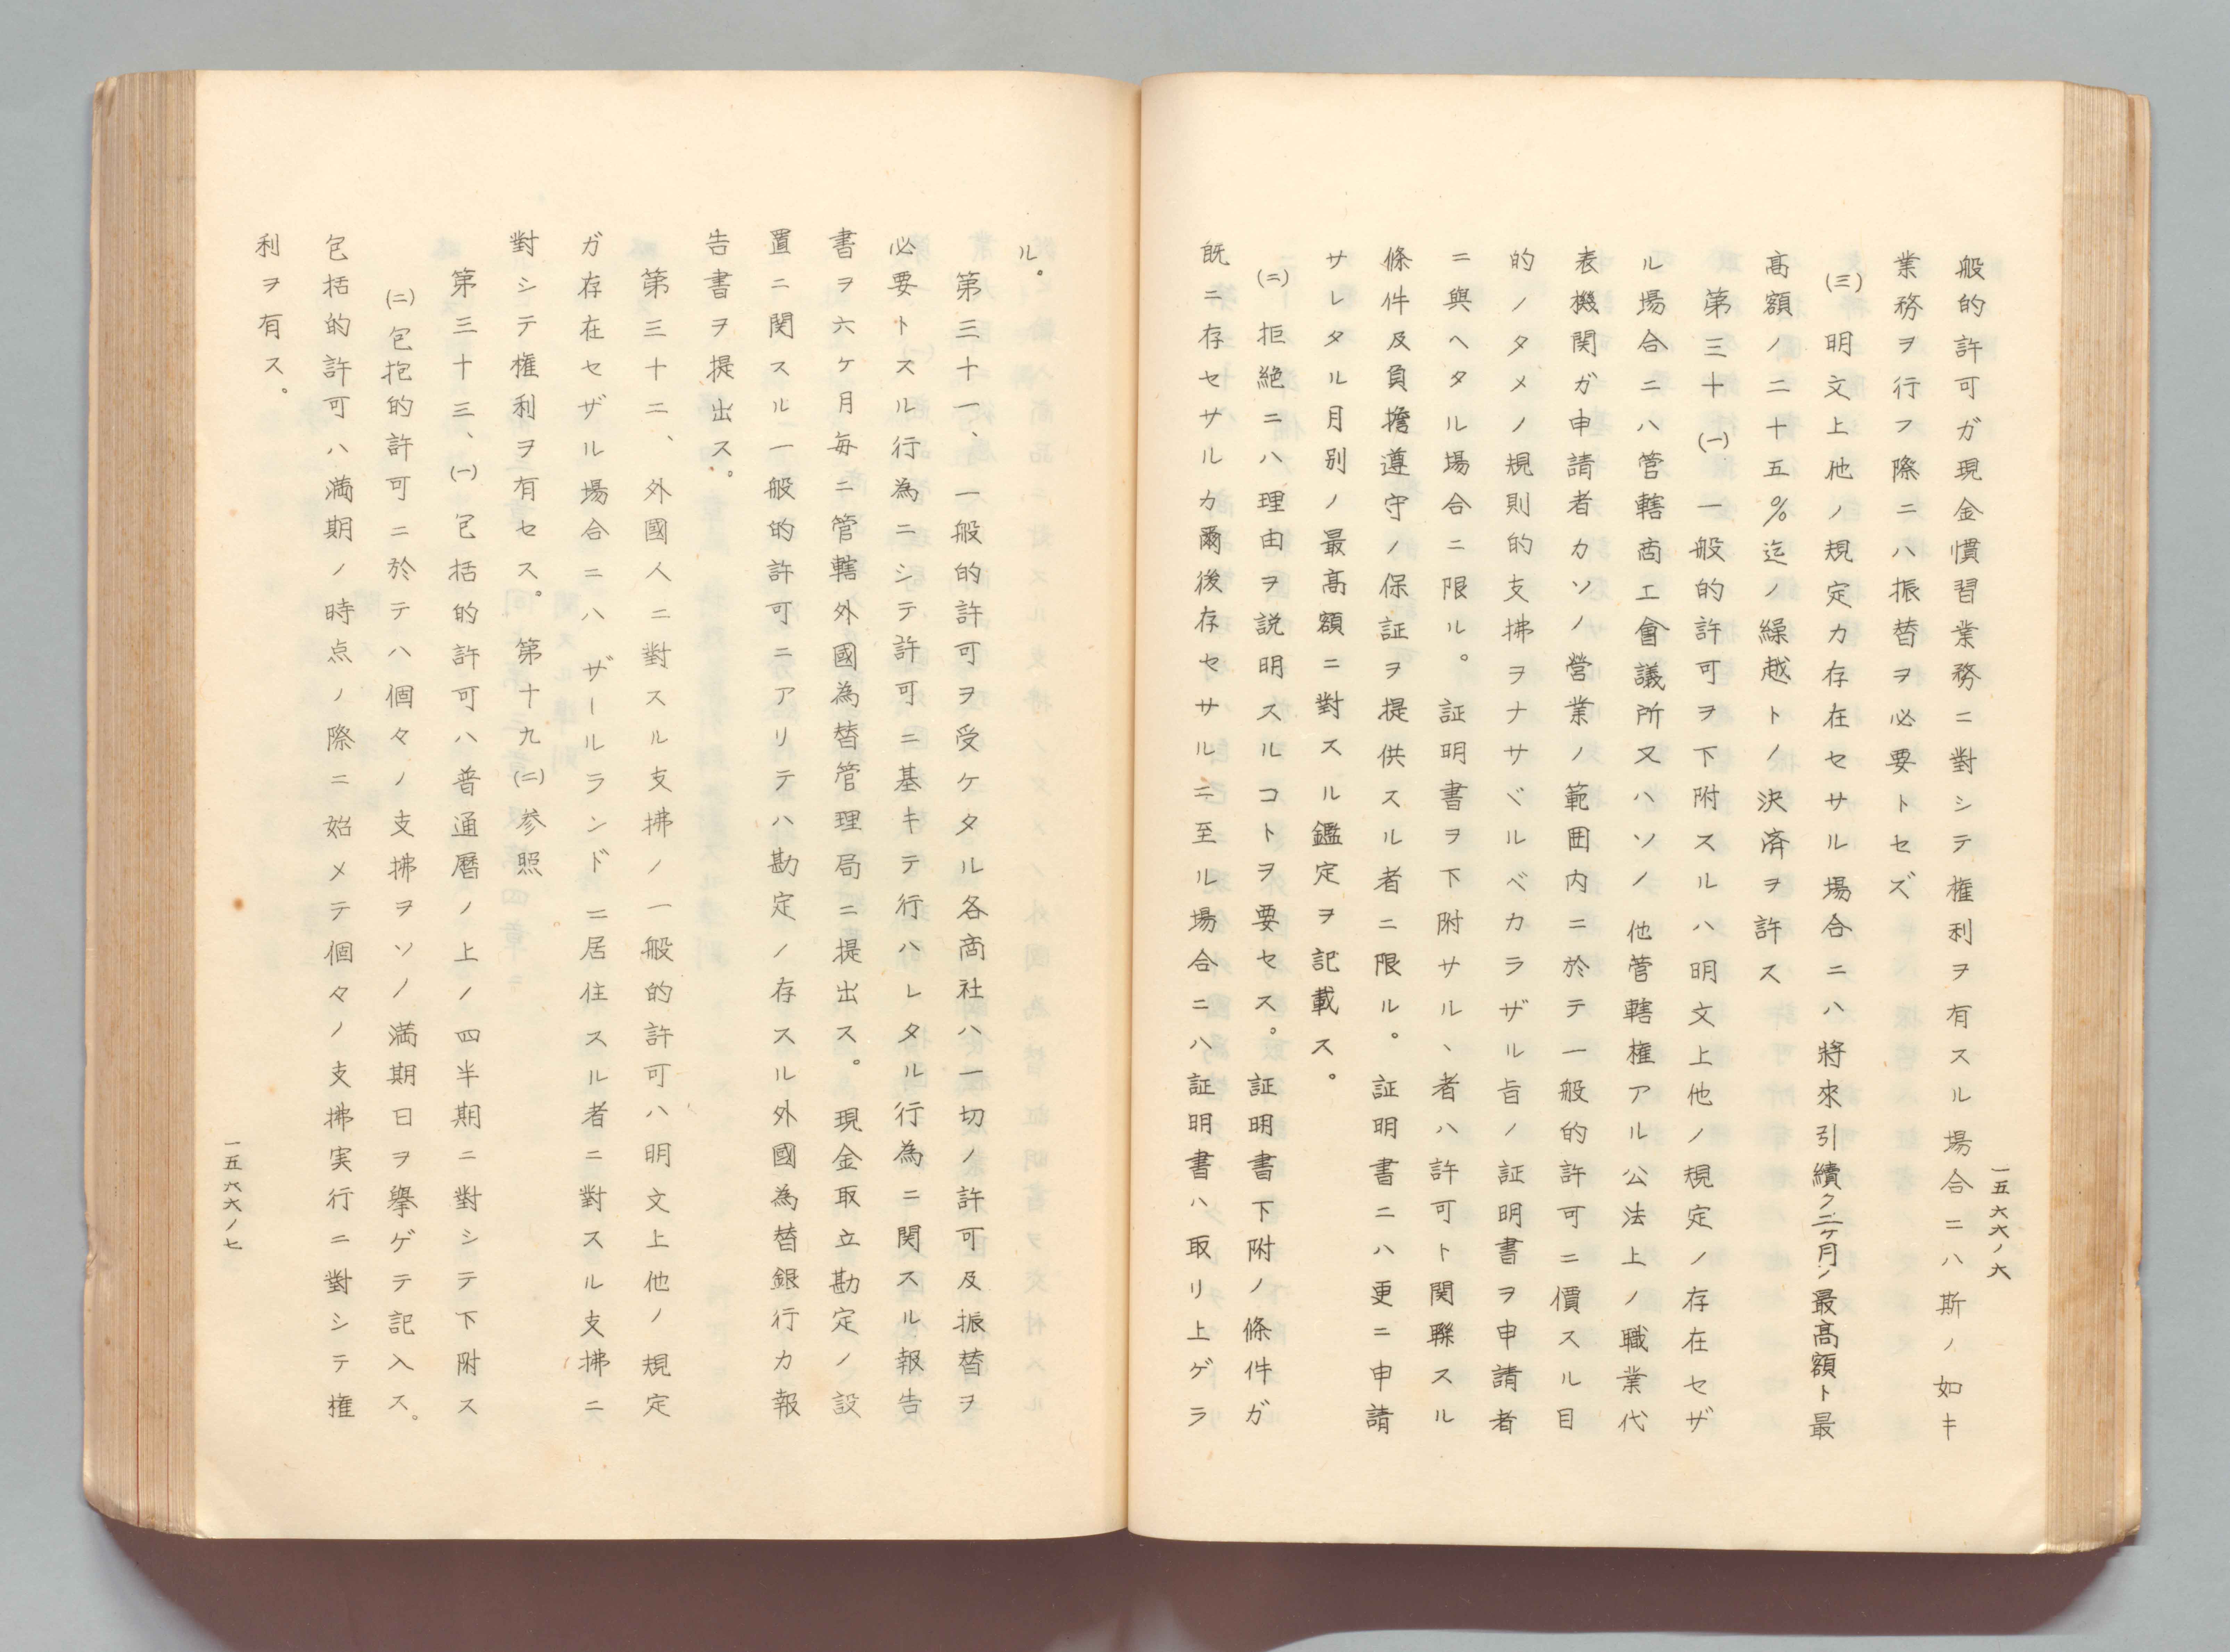 般的許可ガ現金慣習業務ニ對シテ権利ヲ有スル場合ニハ斯ノ如キ
業務ヲ行フ際ニハ振替ヲ必要トセズ
(三)　明文上他ノ規定カ存在セサル場合ニハ將來引續ク二ヶ月ノ最高額ト最
高額ノ二十五%迄ノ繰越トノ決済ヲ許ス
第三十(一)　一般的許可ヲ下附スルハ明文上他ノ規定ノ存在セザ
ル場合ニハ管轄商工會議所又ハソノ他管轄権アル公法上ノ職業代
表機関ガ申請者カソノ營業ノ範囲内ニ於テ一般的許可ニ價スル目
的ノタメノ規則的支拂ヲナサヾルベカラザル旨ノ証明書ヲ申請者
ニ與ヘタル場合ニ限ル。証明書ヲ下附サル、者ハ許可ト関聯スル
條件及負擔遵守ノ保証ヲ提供スル者ニ限ル。証明書ニハ更ニ申請
サレタル月別ノ最高額ニ對スル鑑定ヲ記載ス。
(二)　拒絶ニハ理由ヲ説明スルコトヲ要セス。証明書下附ノ條件ガ
既ニ存セサルカ爾後存セサルニ至ル場合ニハ証明書ハ取リ上ゲラ
一五六六ノ六
ル。
第三十一、一般的許可ヲ受ケタル各商社ハ一切ノ許可及振替ヲ
必要トスル行為ニシテ許可ニ基キテ行ハレタル行為ニ関スル報告
書ヲ六ケ月毎ニ管轄外國為替管理局ニ提出ス。現金取立勘定ノ設
置ニ関スル一般的許可ニアリテハ勘定ノ存スル外國為替銀行カ報
告書ヲ提出ス。
第三十二、外國人ニ對スル支拂ノ一般的許可ハ明文上他ノ規定
ガ存在セザル場合ニハザールランドニ居住スル者ニ對スル支拂ニ
對シテ権利ヲ有セス。第十九(二)参照
第三十三、(一)包括的許可ハ普通暦ノ上ノ四半期ニ對シテ下附ス
(二)包抱的許可ニ於テハ個々ノ支拂ヲソノ満期日ヲ擧ゲテ記入ス。
包括的許可ハ満期ノ時点ノ際ニ始メテ個々ノ支拂実行ニ對シテ権
利ヲ有ス。
一五六六ノ七